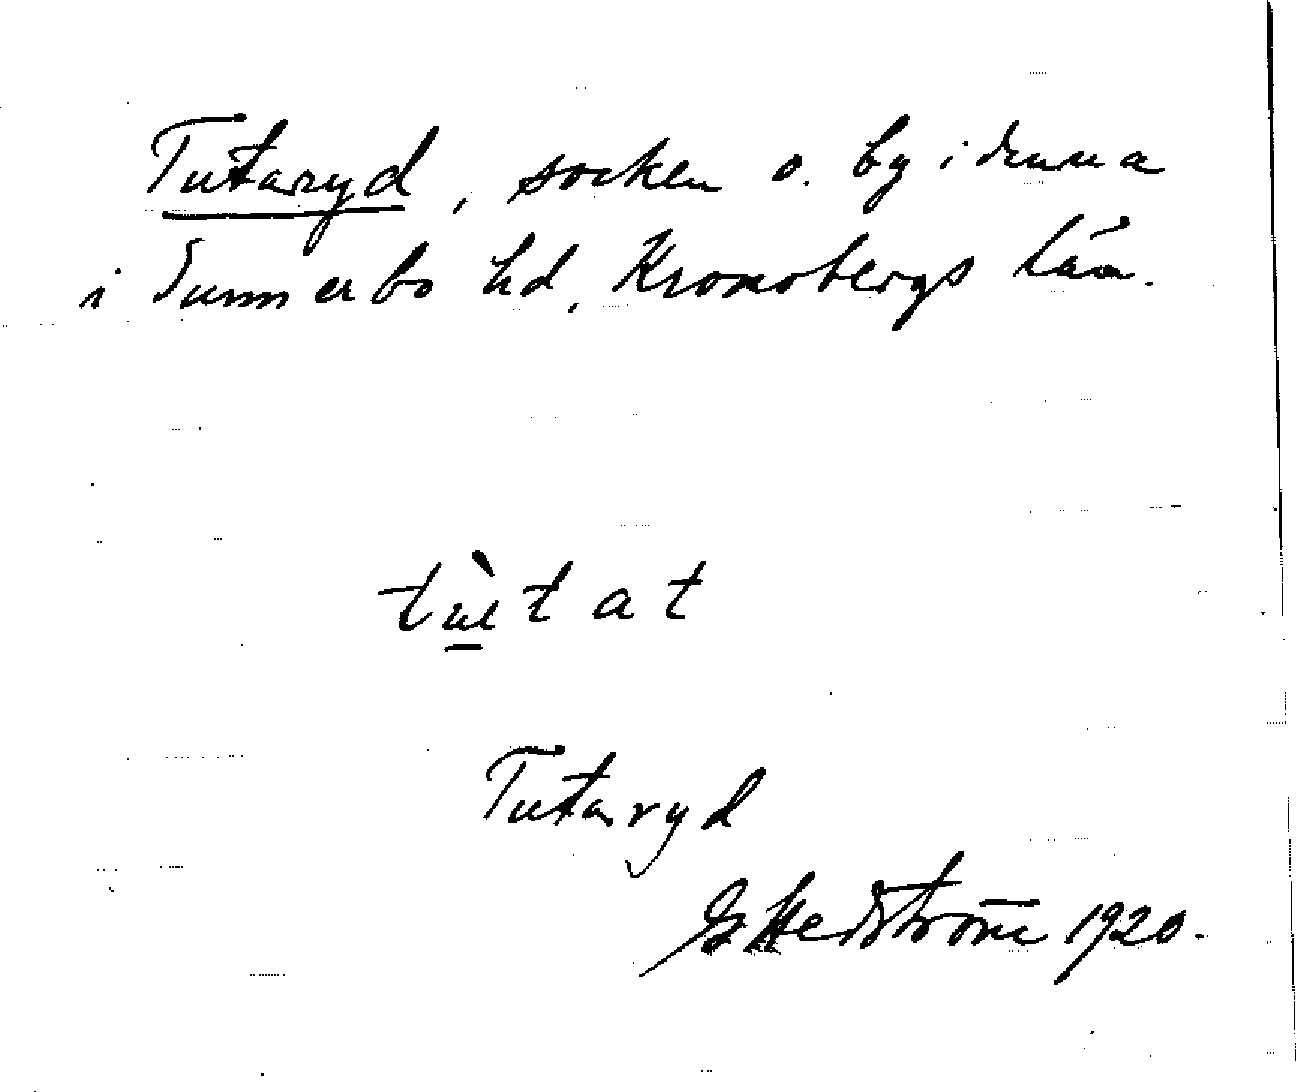 Tutaryd, socken o. by i denna
i Sunnerbo hd, Kronobergs län.
tù̲tat
Tutaryd
G Hedström 1920.